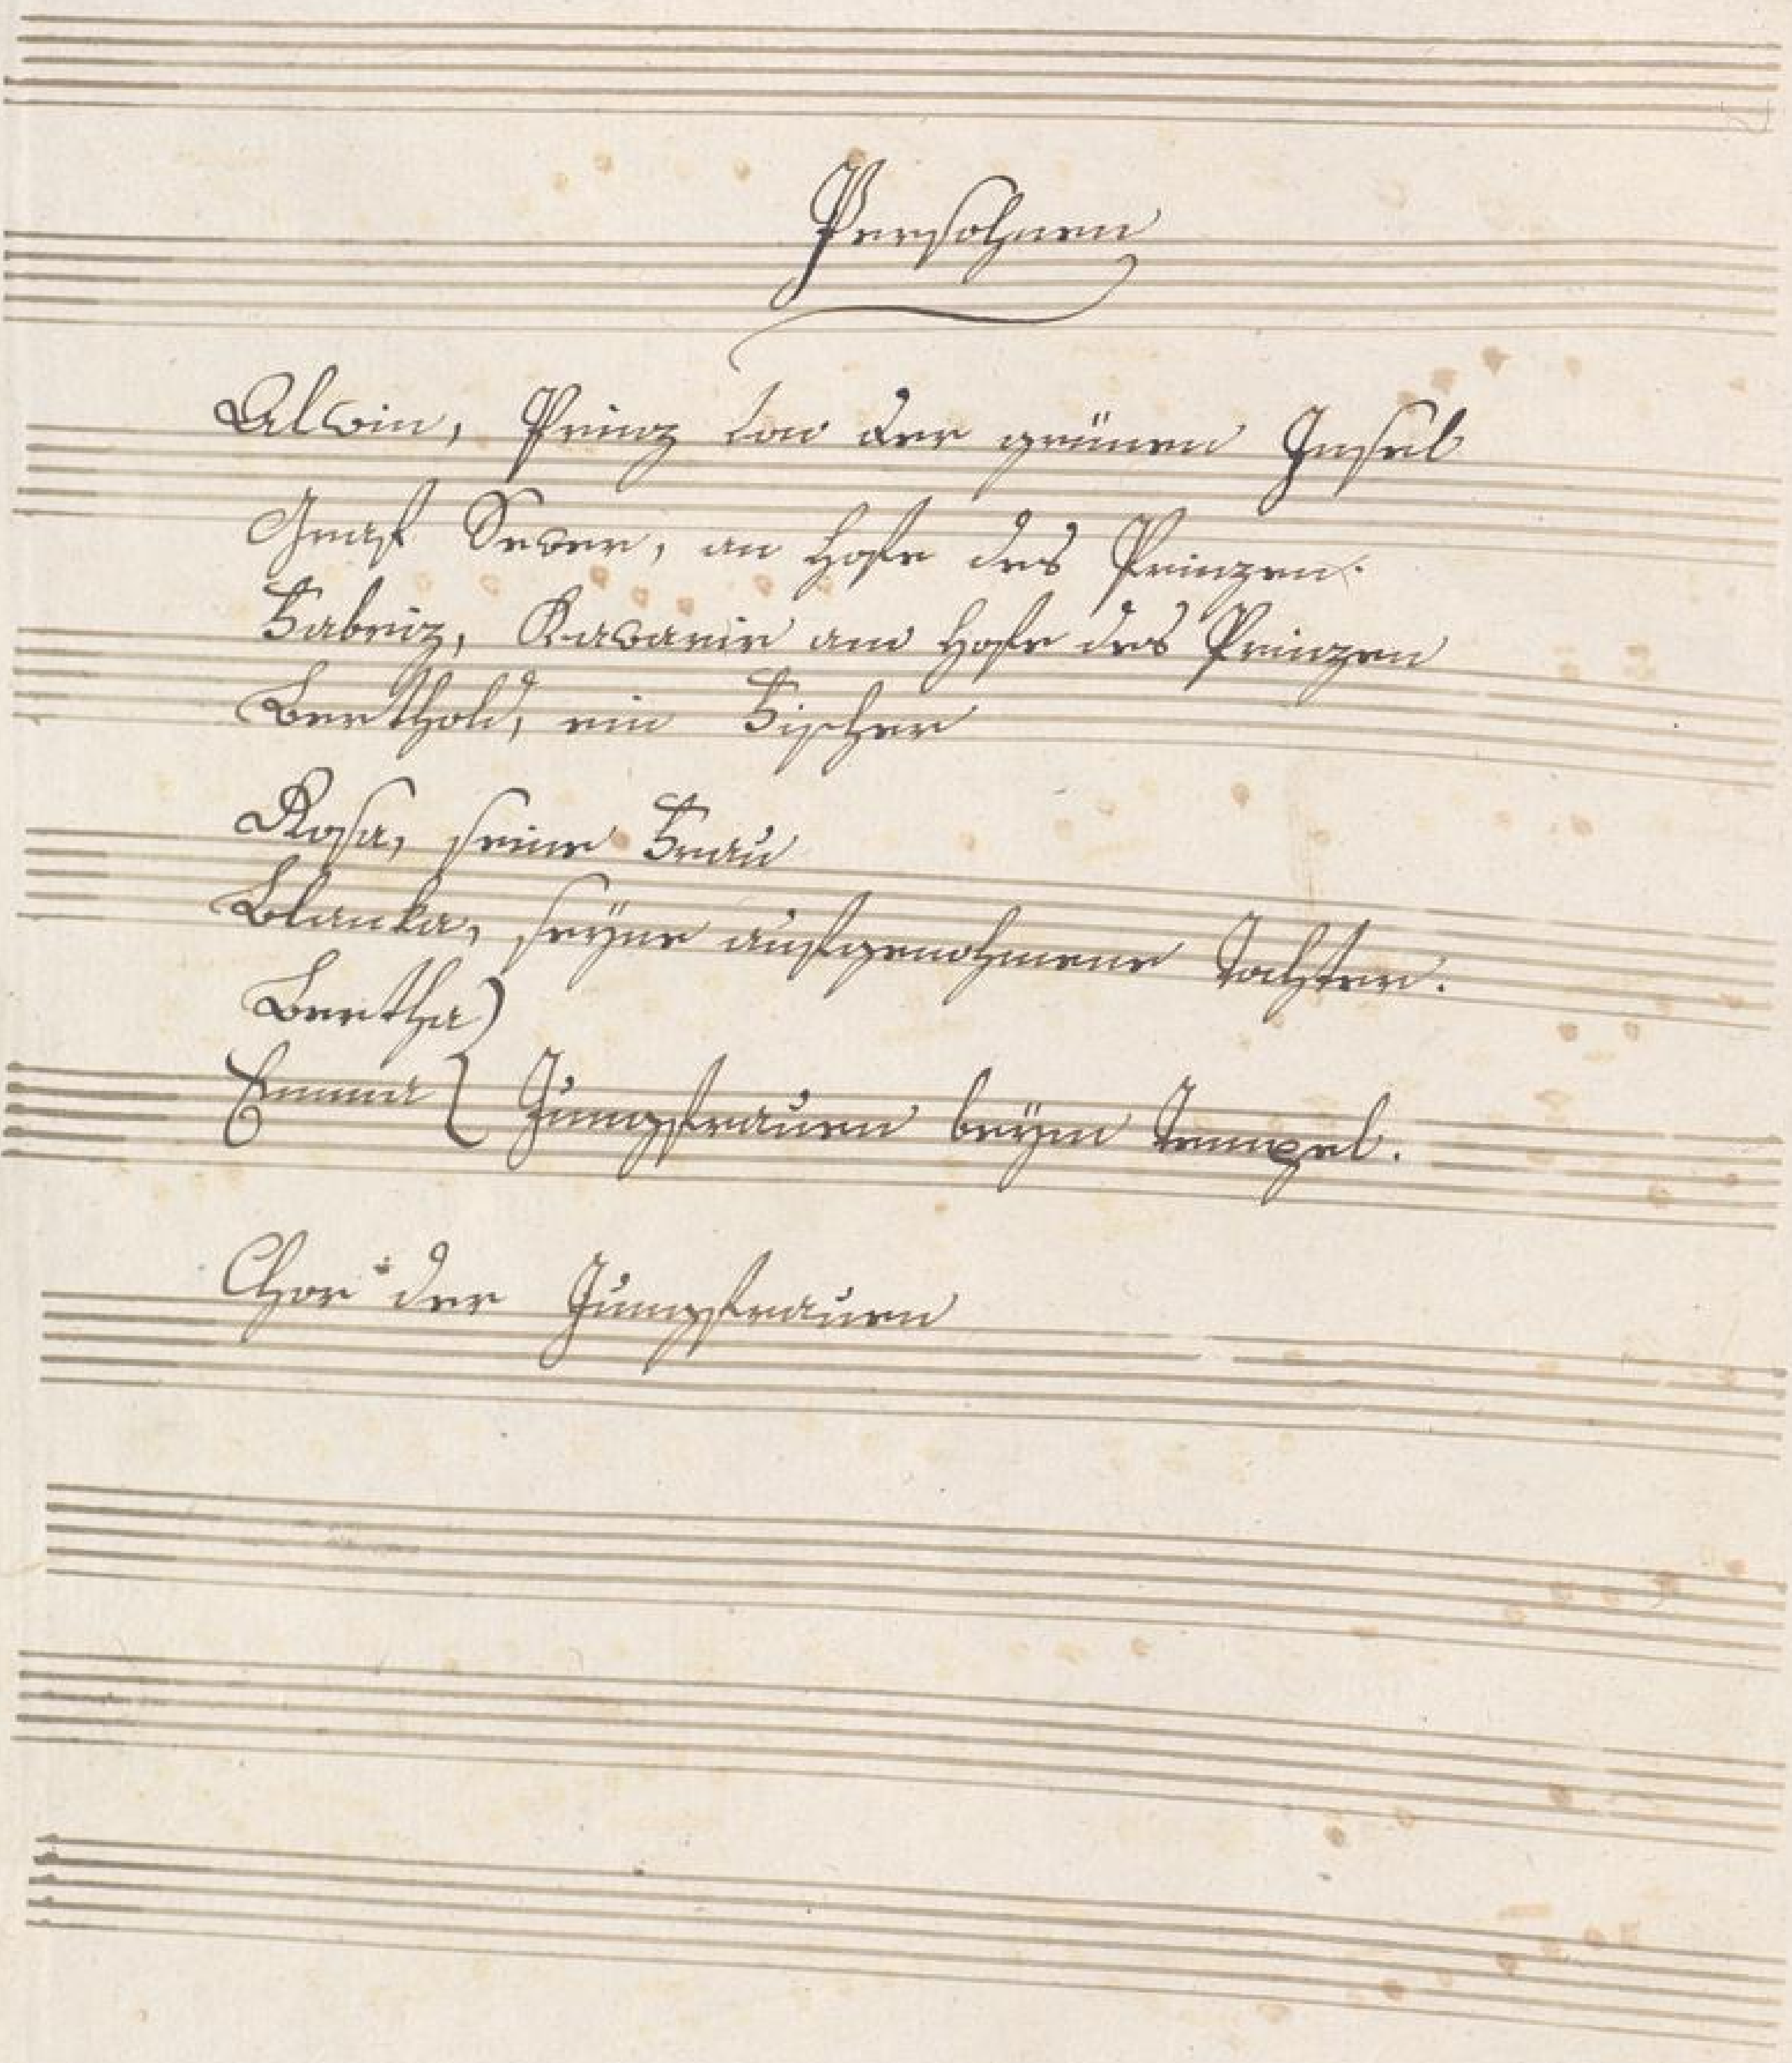 Persohnen
Alwin, Prinz von der grünen Insel
Graf Sever, an Hofe des Prinzen.
Fabriz, Kavarir am Hofe des Prinzen
Berthold, ein Fischer
Rosa, seine Frau
Blanka, seyne aufgenohmene Tochter.
Bertha)
Emma } Jungfrauen beym Tempel.
Chor der Jungfrauen